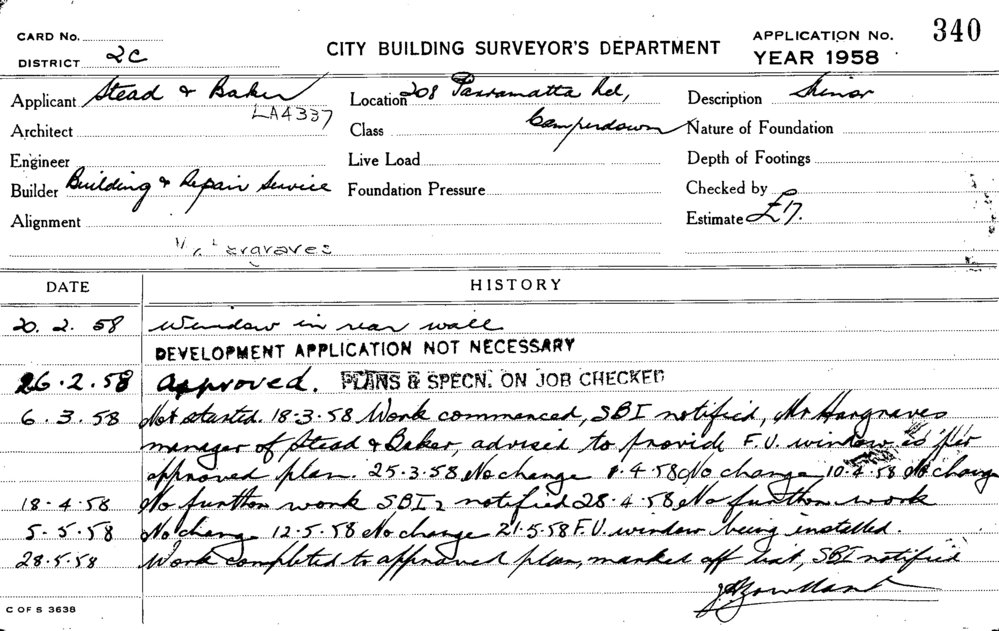 CARD No.
DISTRICT 2C
CITY BUILDING SURVEYOR'S DEPARTMENT
APPLICATION No. 340
YEAR 1958
Applicant Stead & Baker
LA4337
Location 208 Parramatta Rd,
Camperdown
Description Minor
Architect
Class
Nature of Foundation
Engineer
Live Load
Depth of Footings
Builder Building & Repair Service
Foundation Pressure
Checked by
Alignment
Estimate £17.
DATE HISTORY
20. 2. 58 Window in rear wall
DEVELOPMENT APPLICATION NOT NECESSARY
26.2.58 Approved. PLANS & SPECN. ON JOB CHECKED
6.3.58 Not started. 18-3-58 Work commenced, SBI notified, Mr Hargraves
manager of Stead & Baker, advised to provide F.V. window as per
approved plan. 25-3-58 No change 1.4.58 No change 10-4-58 No change
18-4-58 No further work SBI notified 28-4-58 No further work
5-5-58 No change 12-5-58 No change 21-5-58 F.V. window being installed
28.5.58 Work completed to approved plan, marked off list, SBI notified
C OF S 3638